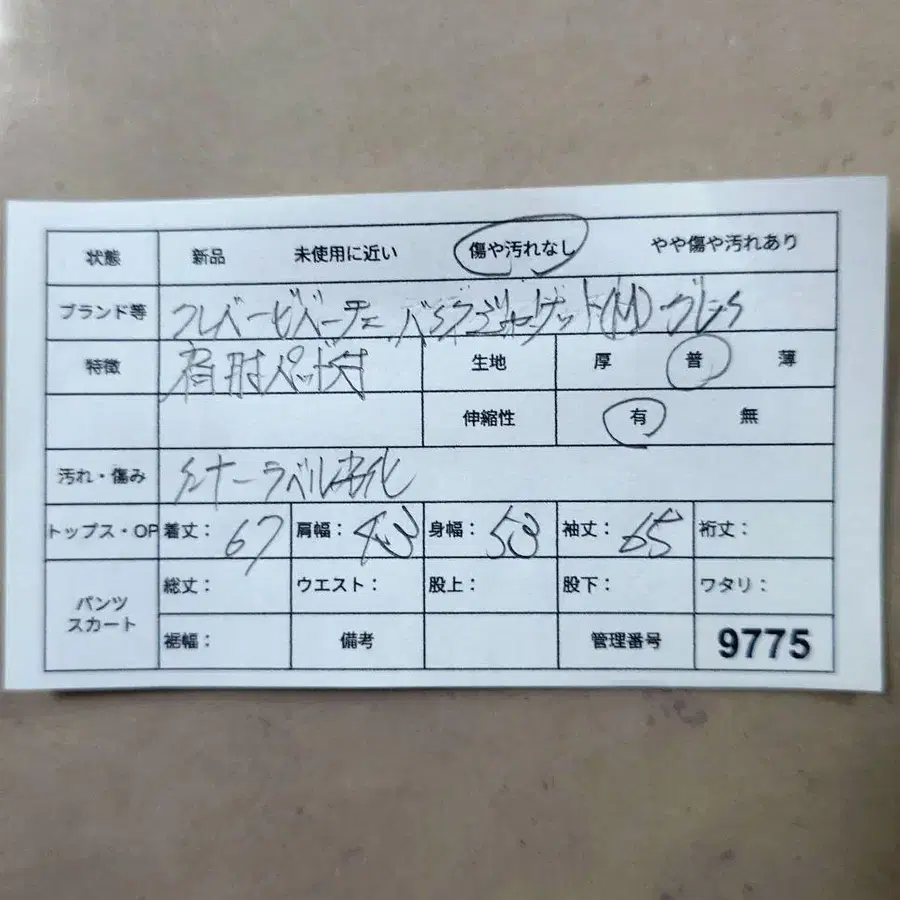 状態 新品 未使用に近い 傷や汚れなし やや傷や汚れあり
ブランド等 フレバービバーチェ ジャケット(M)
特徴 肩肘パッド付 生地 厚 普 薄
伸縮性 有 無
汚れ・傷み ラベル劣化
トップス・OP 着丈: 67 肩幅: 43 身幅: 53 袖丈: 65 裄丈:
パンツ スカート 総丈: ウエスト: 股上: 股下: ワタリ:
裾幅: 備考 管理番号 9775